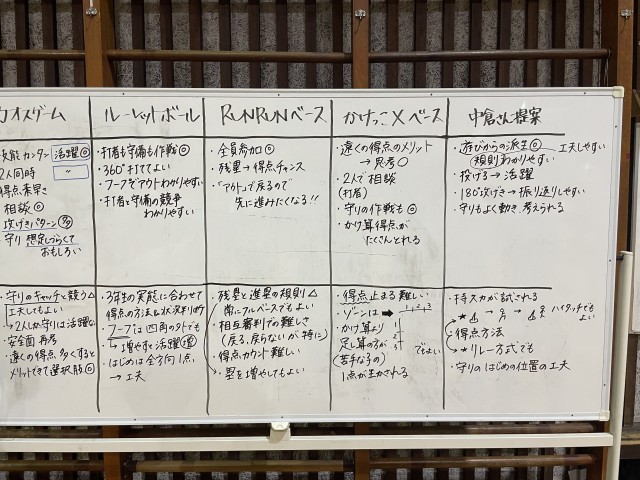 カオスゲーム
技能カンタン 活躍◎
2人同時
得点素早さ
相談◎
攻げきパターン
守り 想定しづらくて
おもしろい
ルーレットボール
・打者も守備も作戦◎
・360°打ててよい
・フープでアウトわかりやすい
・打者と守備の競争
わかりやすい
RUNRUNベース
・全員参加◎
・残塁→得点チャンス
・「アウトで戻るので
先に進みたくなる!!
かけっこ×ベース
・遠くの得点のメリット
→思考○
・2人で相談
(打者)
・守りの作戦も◎
・かけ算得点が
たくさんとれる
中倉さん提案
・遊びからの派生◎ 工夫しやすい
(規則わかりやすい
・投げる→活躍
・180°攻げき→振り返りしやすい
・守りもよく動き、考えられる
・守りのキャッチと競う△
工夫してもよい
→2人しか守りは活躍
・安全面 再考
・遠くの得点多くすると
メリットできて選択肢◎
・3年生の実態に合わせて
得点の方法&状況判断
・フープは四角の外でも
↳増やすと活躍増
・はじめは全方向1点、
→工夫
・残塁と進塁の規則△
・南=フルベースでもよい
・相互審判での難しさ
(戻る、戻らないが特に)
・得点カウント難しい
・塁を増やしてもよい
・得点止まる難しい
・ゾーンは → 1 2 3
・かけ算より
足し算の方が
(苦手な子の)
1点が生かされる
1
2
3
でもよい
・持スカが試される
→★ ハイタッチでもよい
・得点方法
→★リレー方式でも
・守りのはじめの位置の工夫